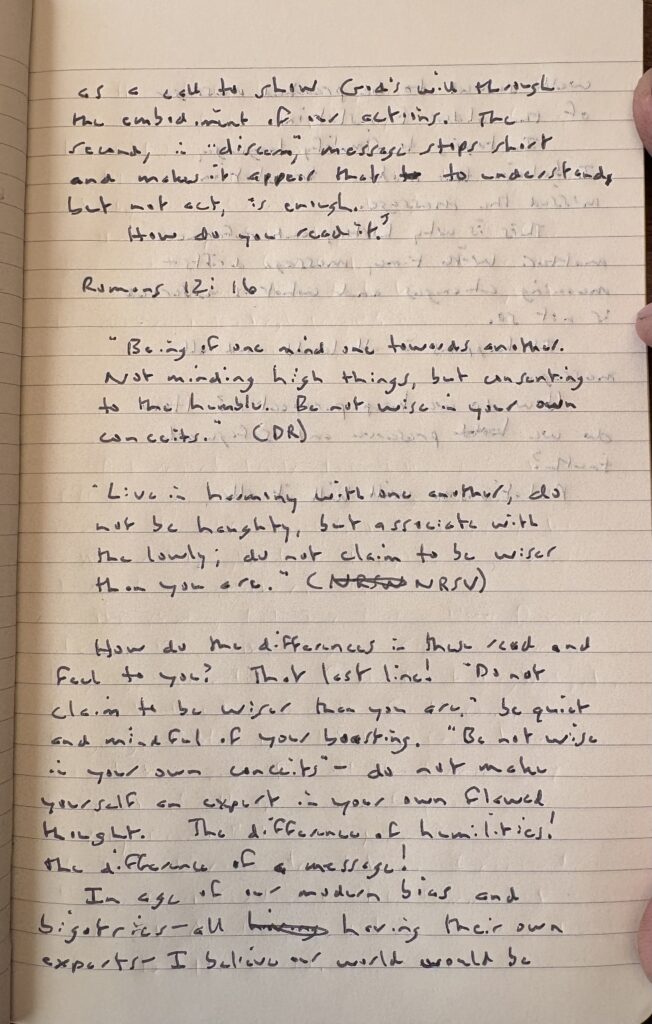 as a call to show God's will through
the embodiment of our actions. The
second, in "discern," message stops short
and makes it appear that to to understand,
but not act, is enough.
How do you read it?
Romans 12:16
"Being of one mind one towards another.
Not minding high things, but consenting
to the humble. Be not wise in your own
conceits." (DR)
"Live in harmony with one another; do
not be haughty, but associate with
the lowly; do not claim to be wiser
than you are." (NRSV NRSV)
How do the differences in these read and
feel to you? That last line! "Do not
claim to be wiser than you are," be quiet
and mindful of your boasting. "Be not wise
in your own conceits" - do not make
yourself an expert in your own flawed
thought. The difference of humilities!
the difference of a message!
In age of our modern bias and
bigotries - all having having their own
experts - I believe our world would be